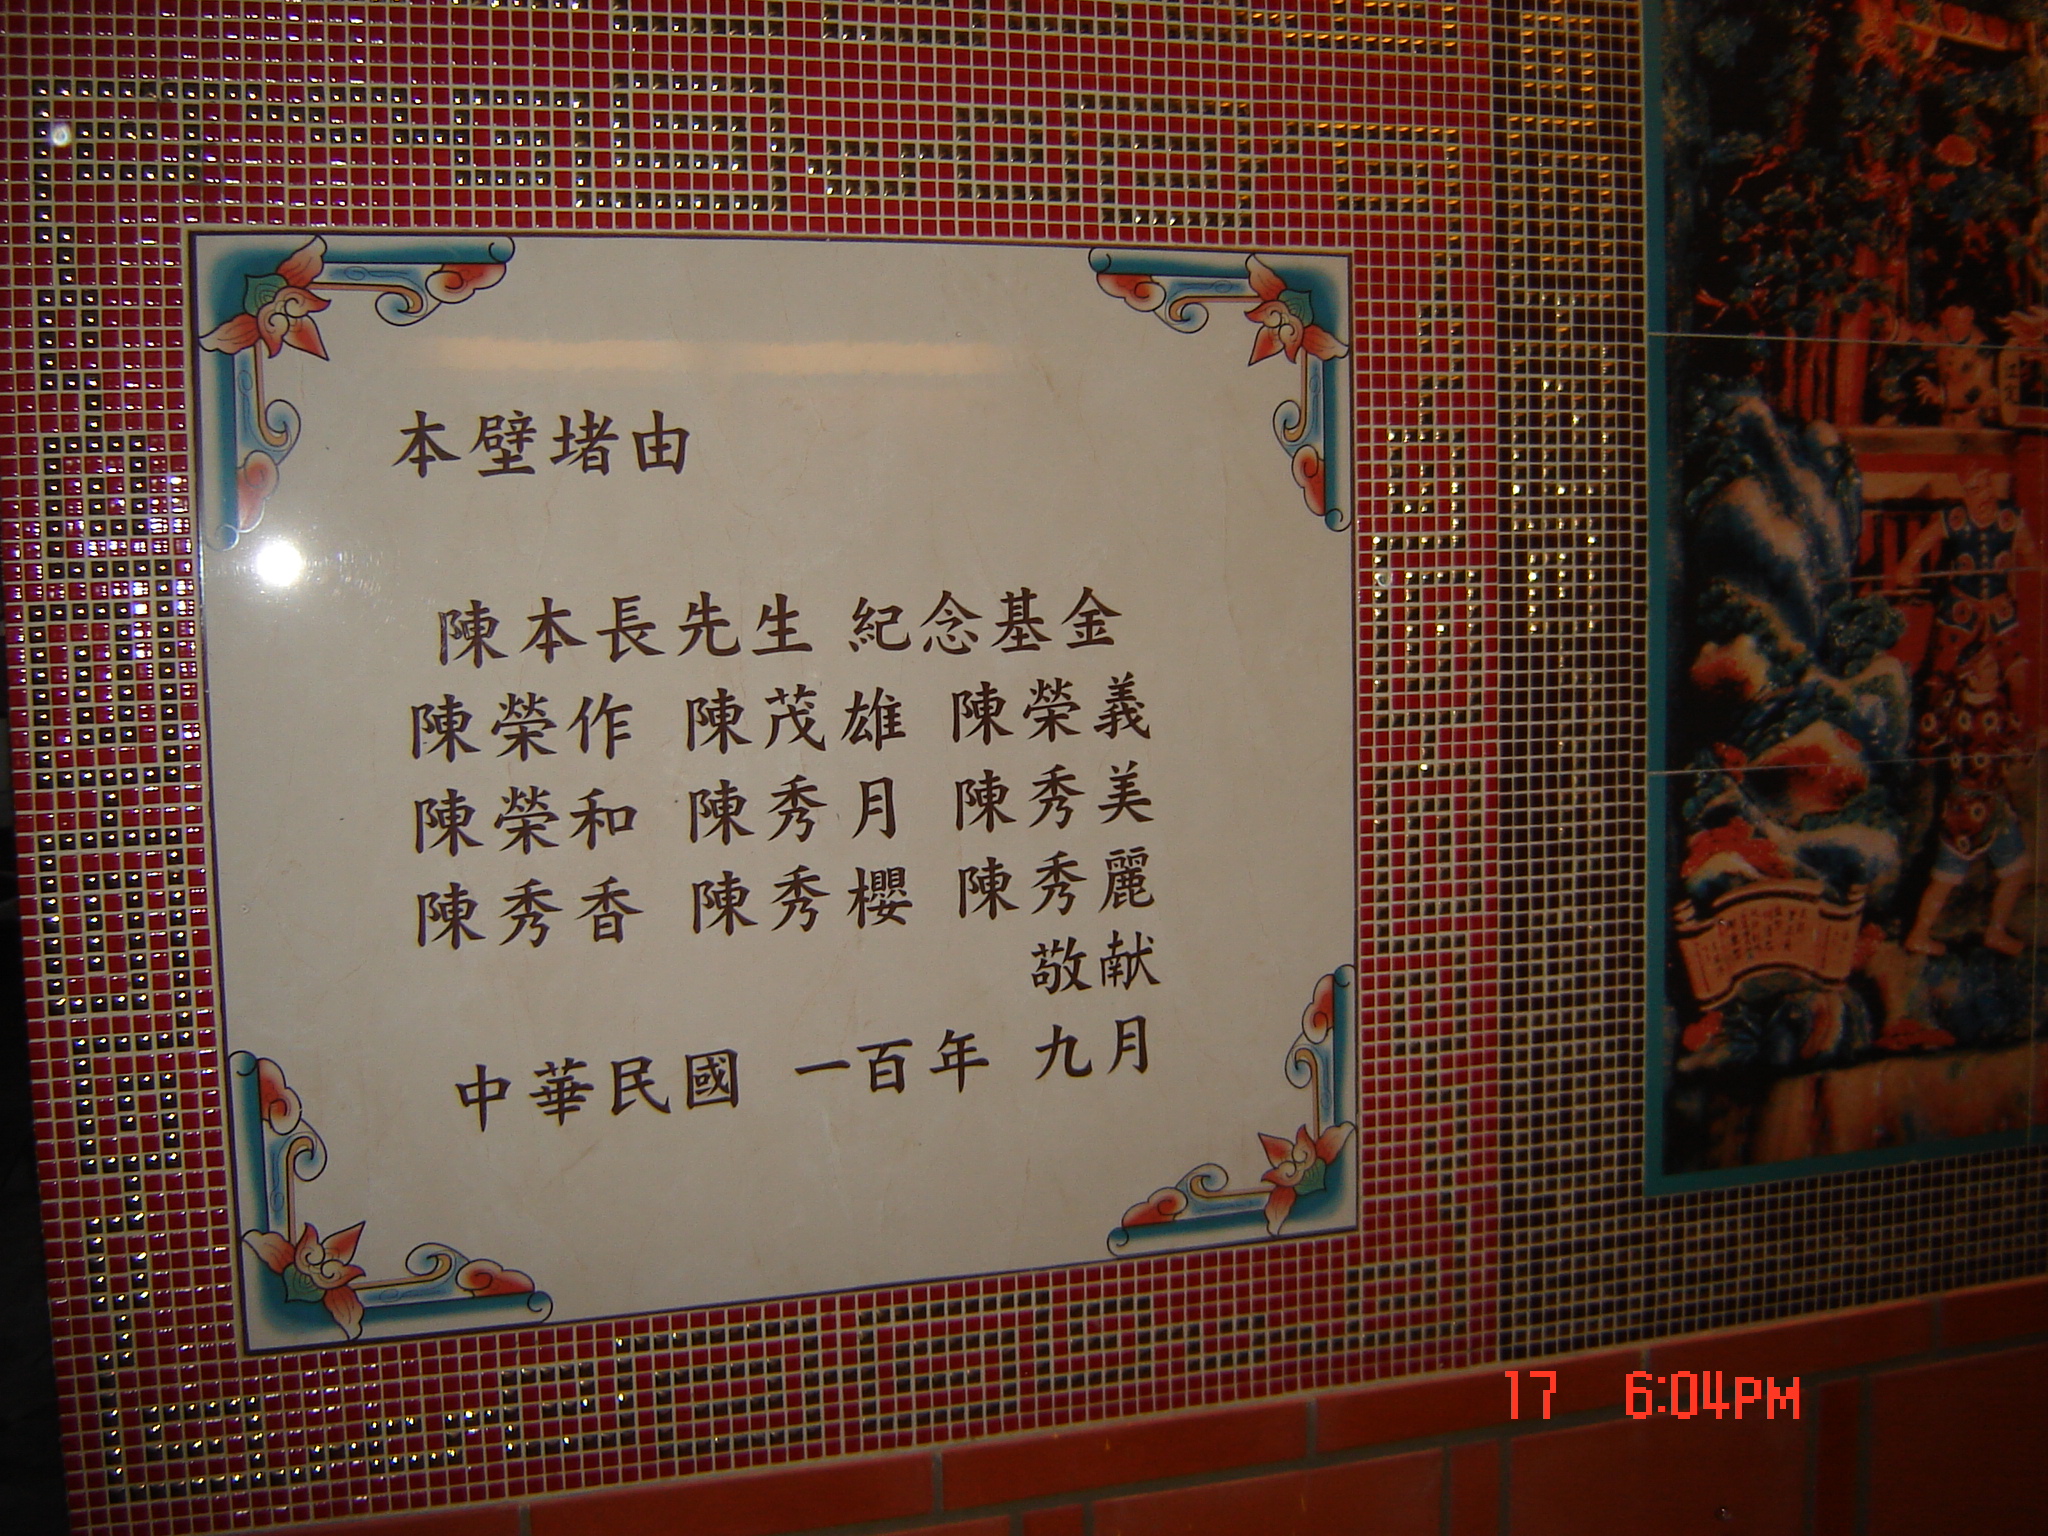 本壁堵由
陳本長先生 紀念基金
陳榮作 陳茂雄 陳榮義
陳榮和 陳秀月 陳秀美
陳秀香 陳秀櫻 陳秀麗
敬献
中華民國 一百年 九月
17 6:04PM